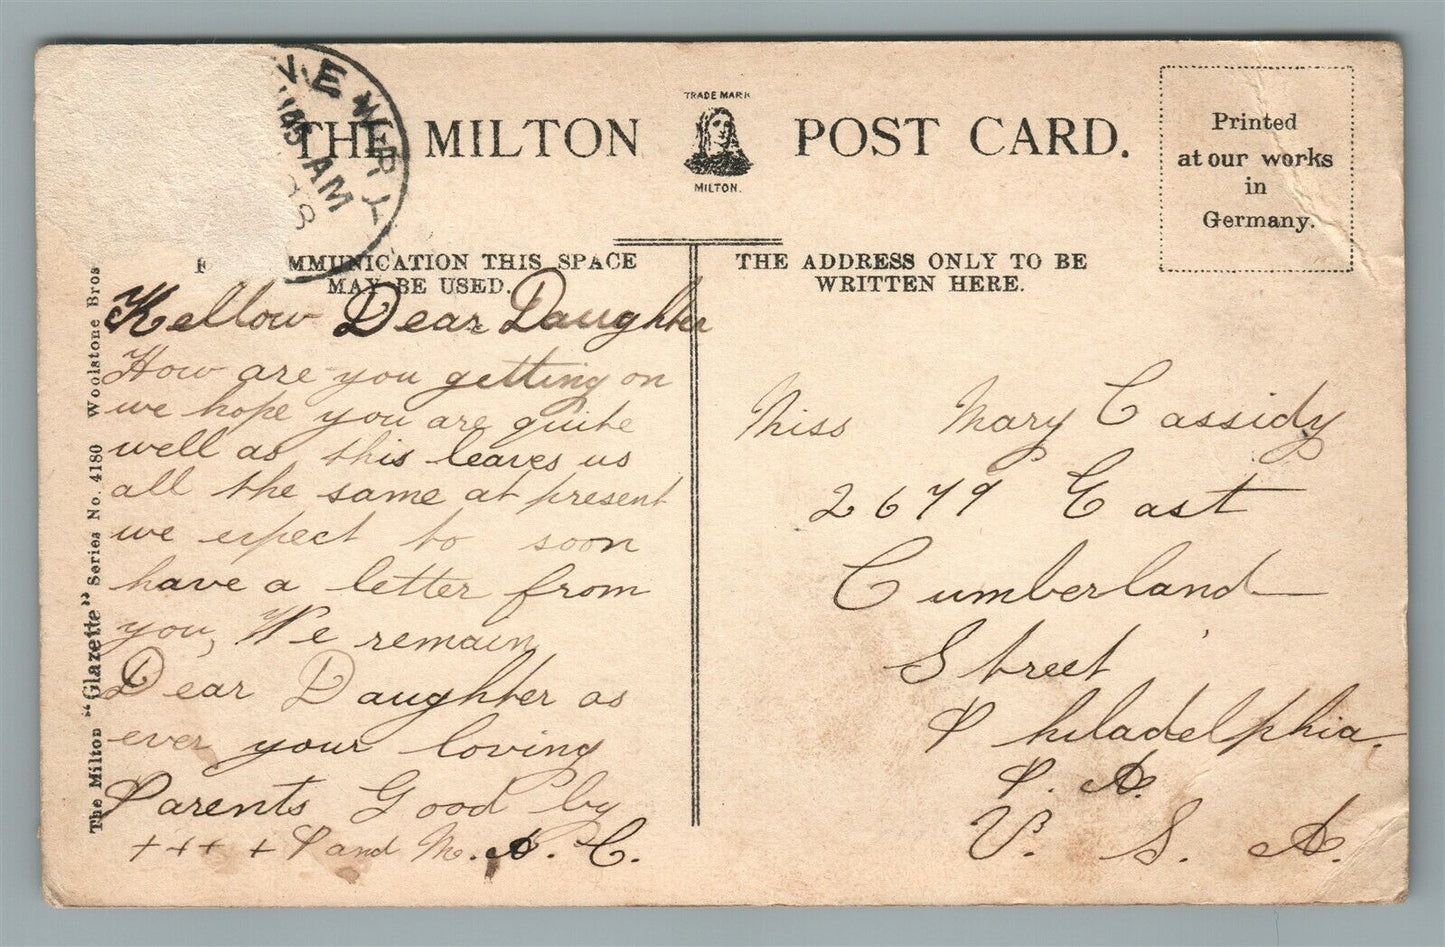 NEWRY
AM
08
THE MILTON POST CARD.
TRADE MARK
MILTON.
Printed
at our works
in
Germany.
MMUNICATION THIS SPACE
MAY BE USED.
THE ADDRESS ONLY TO BE
WRITTEN HERE.
The Milton "Glazette" Series No. 4180 Woolstone Bros
Hellow Dear Daughter
How are you getting on
we hope you are quite
well as this leaves us
all the same at present
we expect to soon
have a letter from
you, We remain
Dear Daughter as
ever your loving
Parents Good by
+ + + + P and M. A. C.
Miss Mary Cassidy
2679 East
Cumberland
Street
Philadelphia.
P. A.
U. S. A.